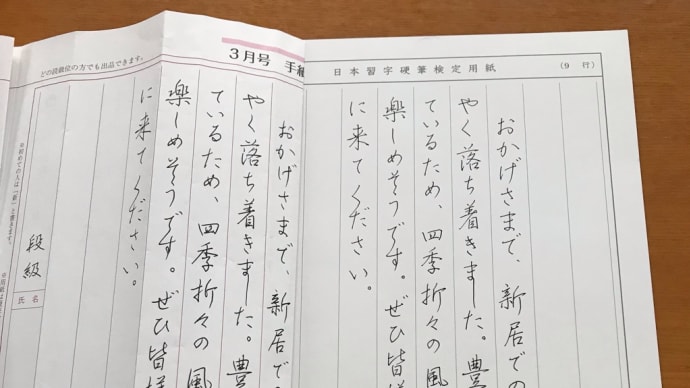 どの段級位の方でも出品できます。
3月号 手紙
おかげさまで、新居で
やく落ち着きました。豊
ているため、四季折々の風
楽しめそうです。ぜひ皆様
に来てください。
段級
氏名
日本習字硬筆検定用紙
(9 行)
おかげさまで、新居での
やく落ち着きました。豊
ているため、四季折々の風
楽しめそうです。ぜひ皆様
に来てください。